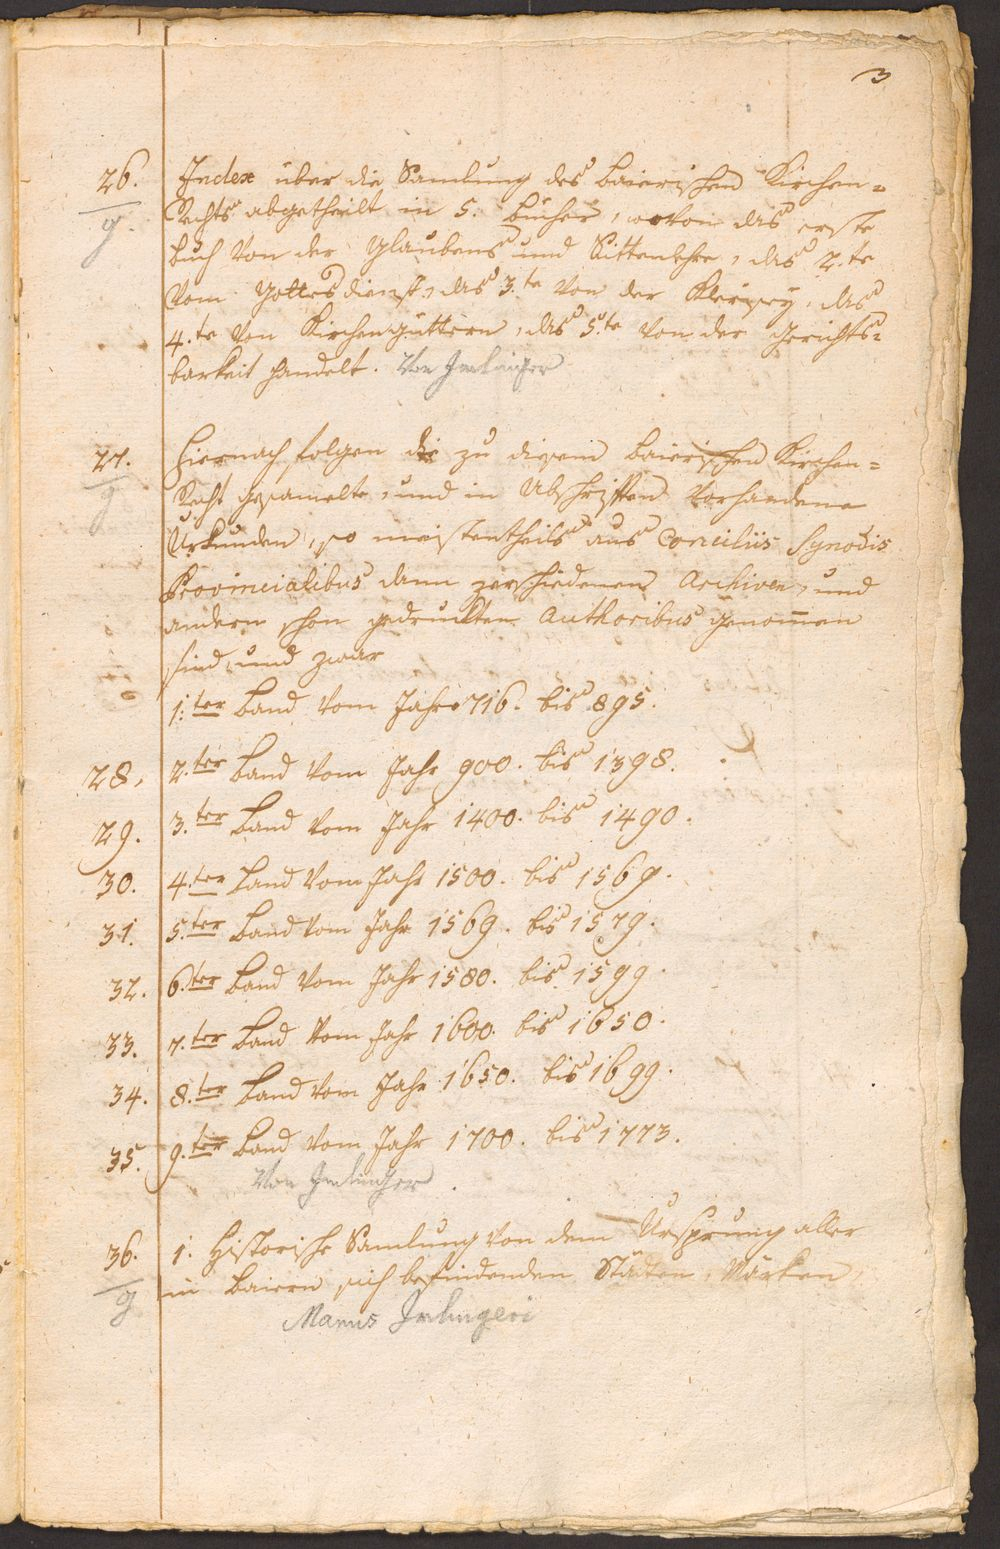 3
26. Index über die Samlung des baierischen Kirchen=
g Rechts abgetheilt in 5. bücher, wovon das erste
buch von der Glaubens und Sittenlehre, das 2.te
vom Gottesdienst, das 3.te von der Klerisey, das
4.te von Kirchengüttern, das 5.te von der gerichts=
barkeit handelt. Von
27. Hiernach folgen die zu diesem baierischen Kirchen=
g Recht gesamelte, und in Abschriften vorhandene
Urkunden, so meistentheils aus Conciliis Synodis
Provincialibus dann verschiedenen Archiven, und
andern schon gedruckten Authoribus genom̄en
sind, und zwar
1.ter Band vom Jahr 716. bis 895.
28. 2.ter Band vom Jahr 900. bis 1398.
29. 3.ter Band vom Jahr 1400. bis 1490.
30. 4.ter Band vom Jahr 1500. bis 1569.
31. 5.ter Band vom Jahr 1569. bis 1579.
32. 6.ter Band vom Jahr 1580. bis 1599.
33. 7.ter Band vom Jahr 1600. bis 1650.
34. 8.ter Band vom Jahr 1650. bis 1699.
35. 9.ter Band vom Jahr 1700. bis 1773.
Von
36. 1. Historische Samlung von dem Ursprung aller
g in Baiern sich befindenden Städten, Märken
Manus